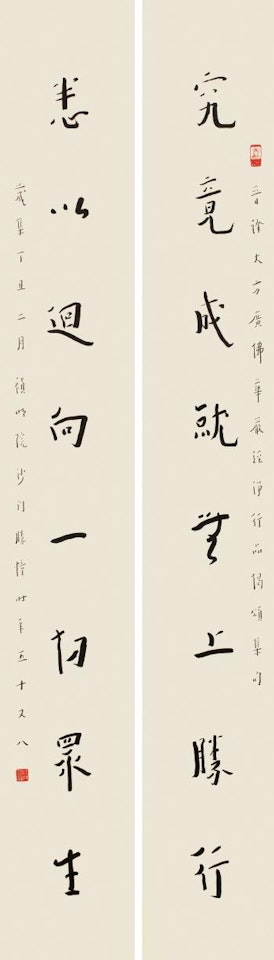 究竟成就無上勝行
晉譯大方廣佛華嚴經淨行品偈頌集句
悉以迴向一切眾生
歲集丁丑二月 沙門勝 年五十又八